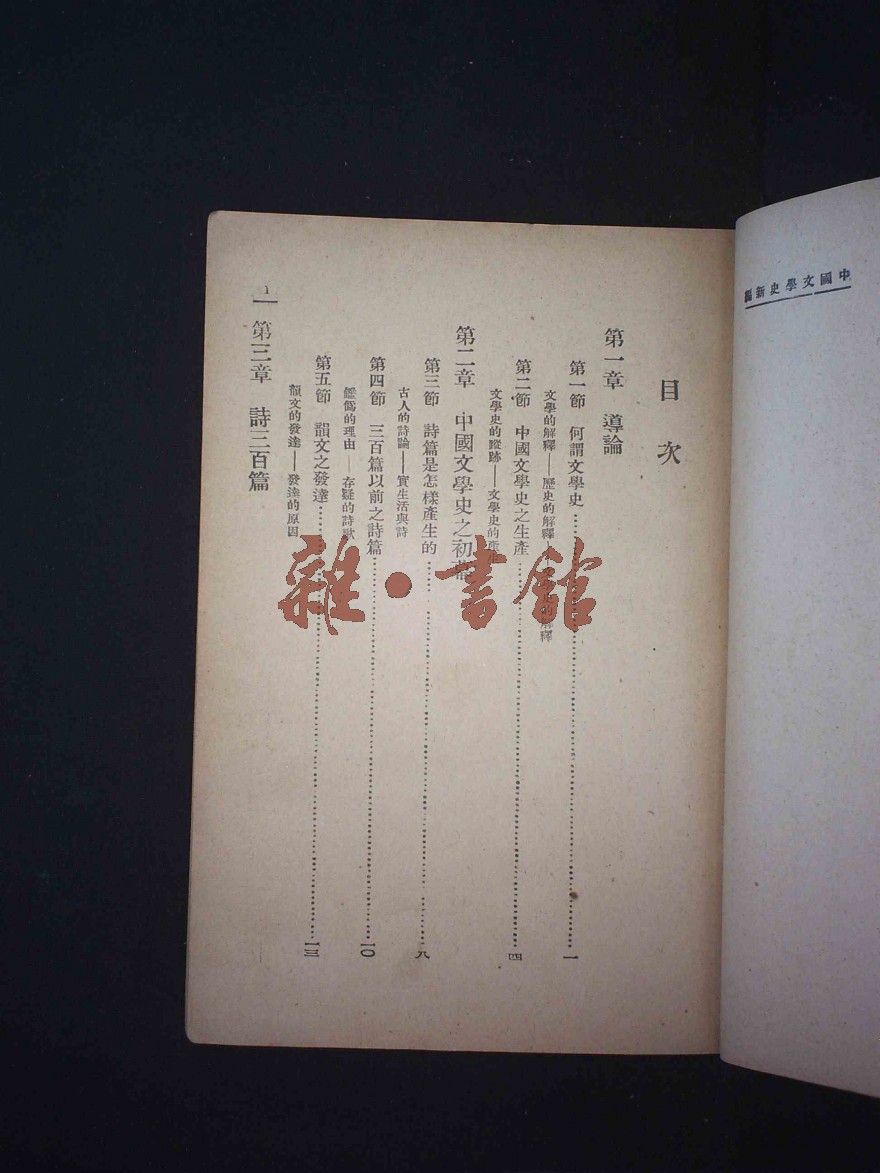 中國文學史新編
目次
第一章 導論
第一節 何謂文學史……一
文學的解釋——歷史的解釋 的解釋
第二節 中國文學史之生產……四
文學史的蹤跡——文學史的產
第二章 中國文學史之初
第三節 詩篇是怎樣產生的……八
古人的詩論——實生活與詩
第四節 三百篇以前之詩篇……一〇
鑑僞的理由——存疑的詩歌
第五節 韻文之發達……一三
韻文的發達——發達的原因
第三章 詩三百篇
一
雜·書館